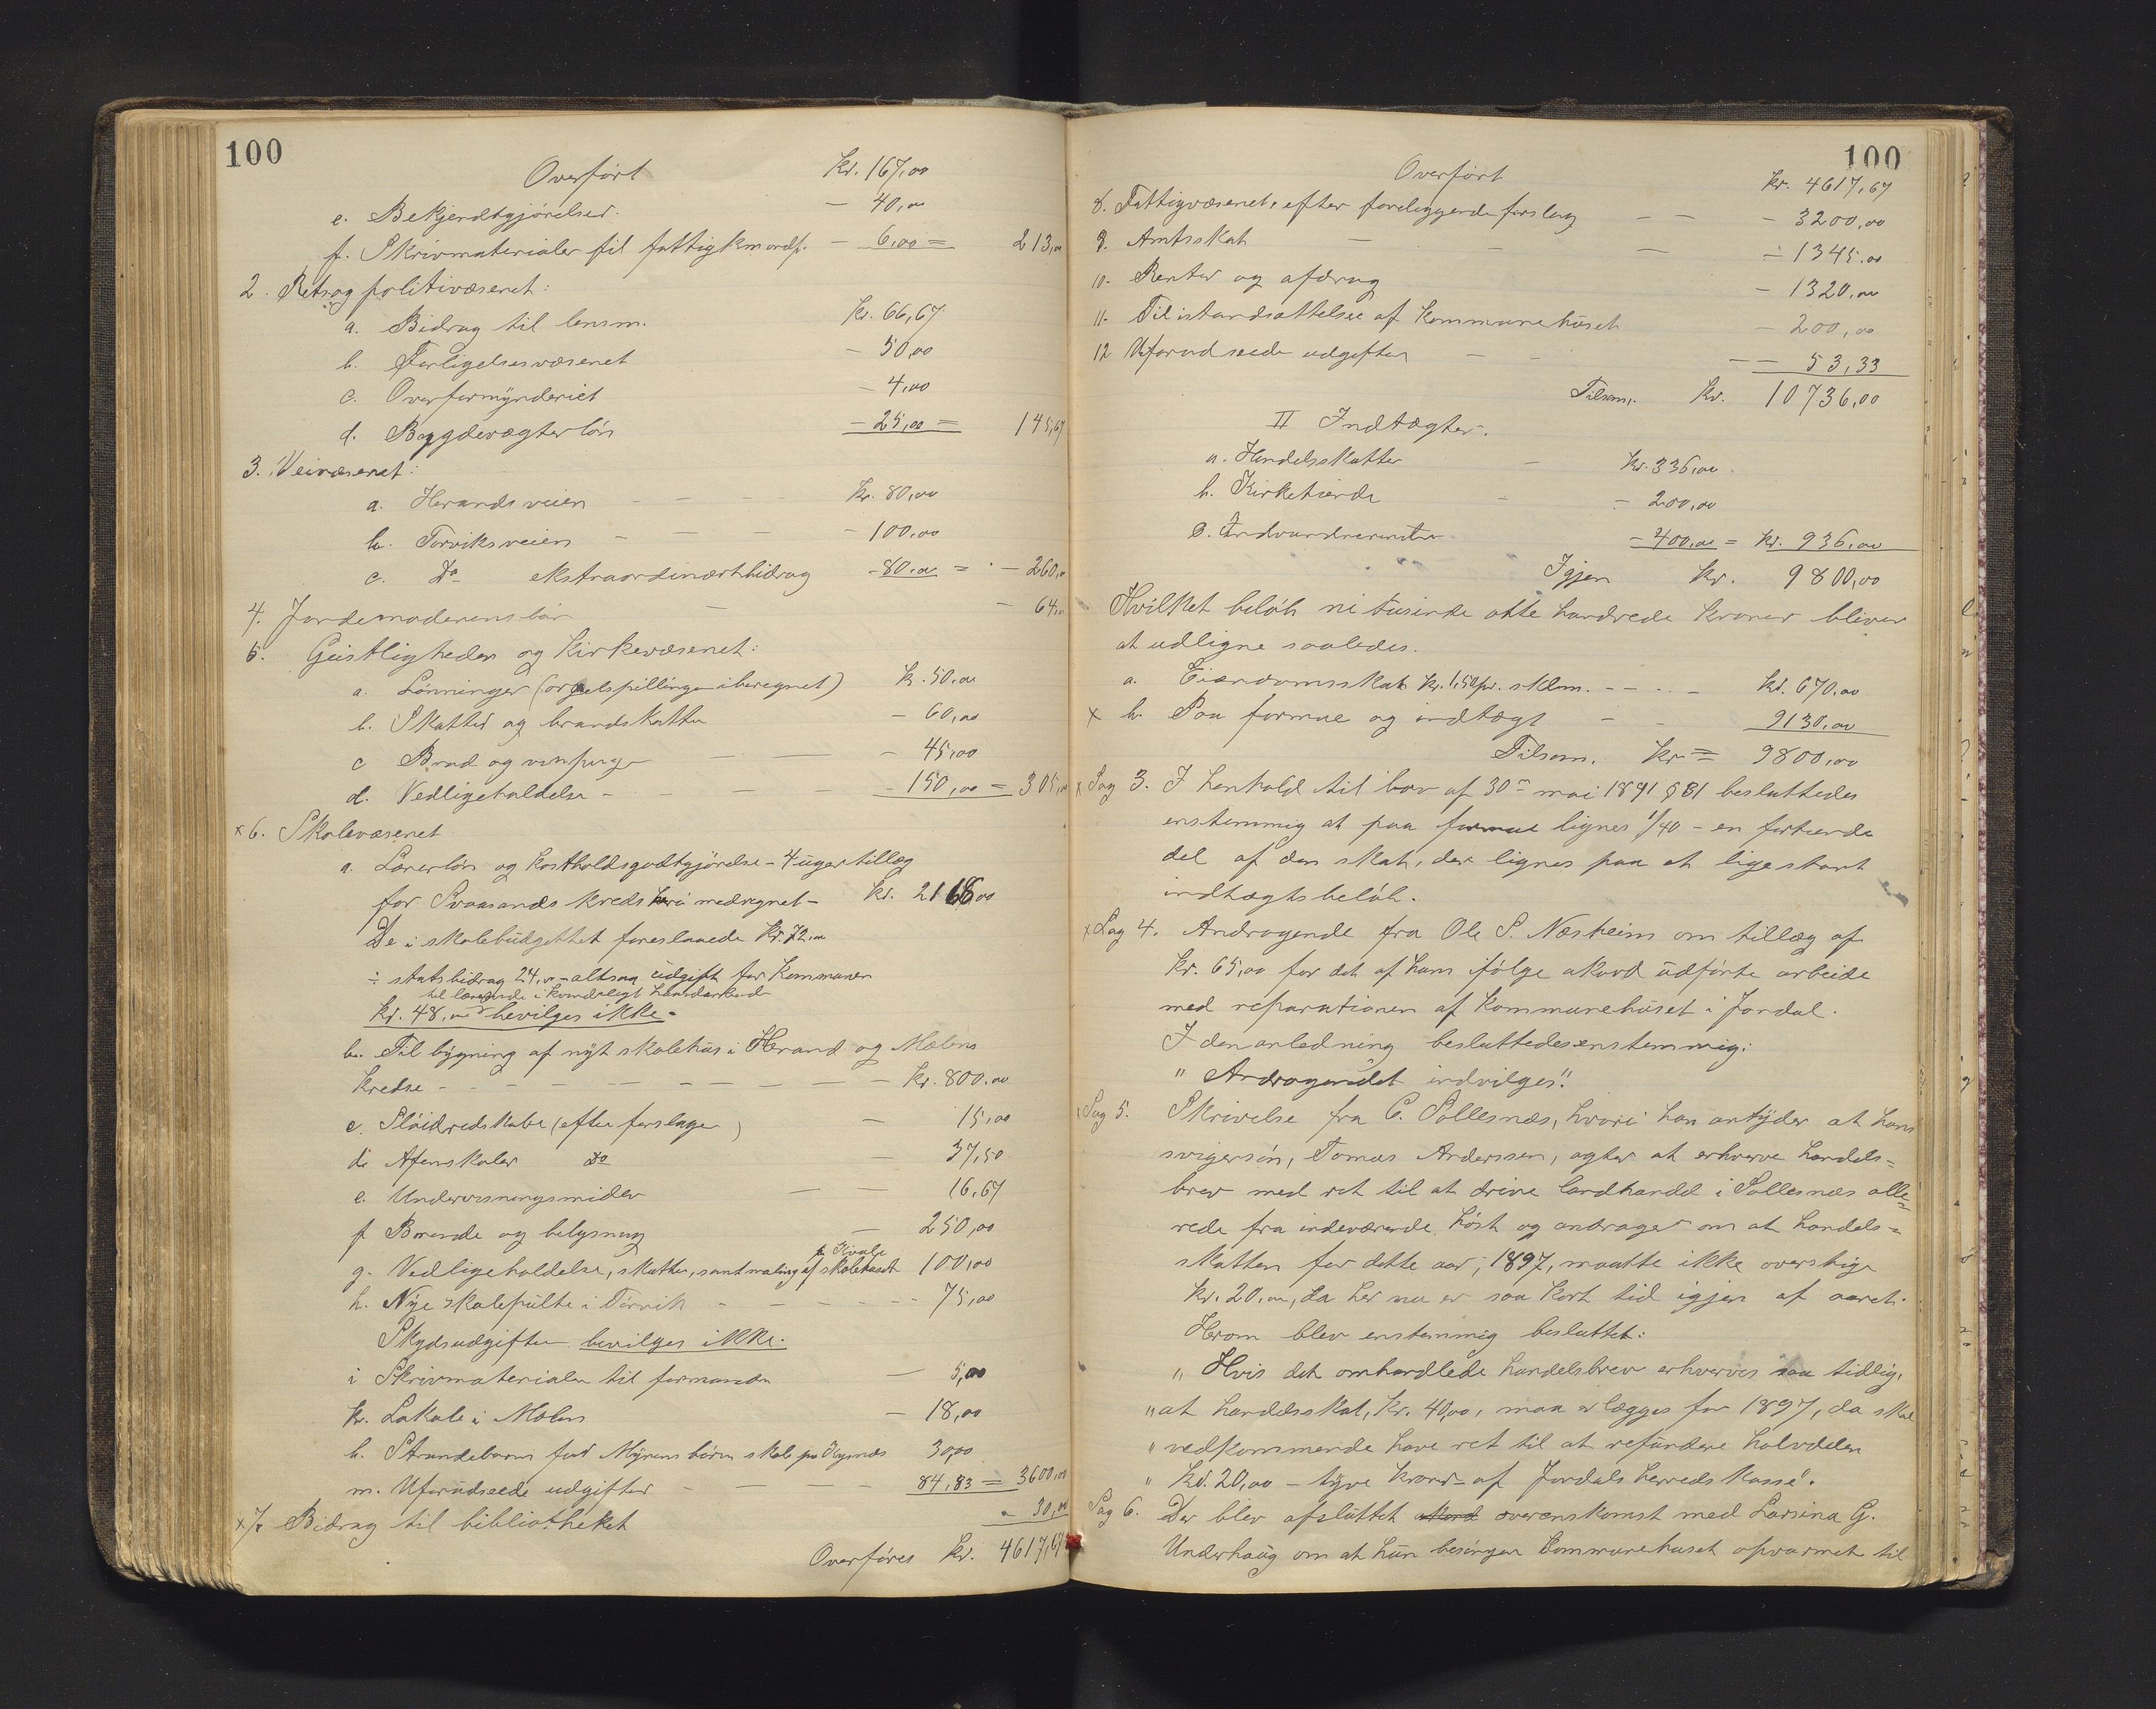 100
Overført Kr. 167,00
e. Bekjendtgjørelser. — 40,00
f. Skrivmaterialer til fattigkm ordf. — 6,00 = 213,00
2. Rets og politivæsenet:
a. Bidrag til lensm. Kr. 66,67
b. Forligelsesvæsenet — 50,00
c. Overformynderiet — 4,00
d. Bygdevægterløn — 25,00 = 145,67
3. Veivæsenet:
a. Herandsveien — — — Kr. 80,00
b. Torviksveien — — — — 100,00
c. Do ekstraordinært bidrag - 80,00 = - — 260,00
4. Jordemoderens løn — — 64,00
5. Geistligheden og Kirkevæsenet:
a. Lønninger (orgelspillingen iberegnet) Kr. 50,00
b. Skatter og brandskatter — 60,00
c Brød og vinpenge — — — 45,00
d. Vedligeholdelse - — — — - 150,00 = 305,00
x 6. Skolevæsenet
a. Lærerløn og kostholdsgodtgjørelse - 4 ugers tillæg
for Svaasands kreds heri medregnet - Kr. 2168,00
De i skolebudgettet foreslaaede Kr. 72,00
÷ statsbidrag 24,00 - altsaa udgift for Kommunen
til lærerinde i kvindeligt haandarbeid
Kr. 48,00 bevilges ikke.
b. Til bygning af nyt skolehus i Herand og Mælens
kredse - - - — — — — — — Kr. 800.00
c. Sløidredskaber (efter forslagen) — 15,00
d. Aftenskoler Do — 37,50
e. Undervisningsmidler — — 16,67
f Brænde og belysning — 250,00
g. Vedligeholdelse, skatter, samt maling af skolehuset 100,00
h. Nye skolepulte i Torvik - — - - — - 75,00
Skydsudgifter bevilges ikke.
i Skrivmaterialer til formanden — 5,00
k. Lokale i Mælen — 18,00
l. Strandebarm for Myrens børns skoleg. paa Kysnæs 30,00
m. Uforudseede udgifter — — — — 84,83 = 3600,00
x 7. Bidrag til bibliotheket - 30,00
Overføres Kr. 4617,67
100
Overført Kr. 4617,67
8. Fattigvæsenet, efter foreliggende forslag — — - 3200,00
9. Amtsskat — — — - 1345.00
10. Renter og afdrag - 1320,00
11. Til istandsættelse af kommunehuset — 200,00
12 Uforudseede udgifter — - — — 53,33
Tilsam. Kr. 10736,00
II Indtægter.
a. Handelsskatter — Kr. 336,00
b. Kirketiende - — 200,00
c. Indvundne renter — 400,00 = Kr. 936,00
Igjen Kr. 9800,00
Hvilket beløb ni tusinde otte hundrede kroner bliver
at udligne saaledes.
a. Eiendomsskat Kr. 1,50 pr. sklm. - — - - — Kr. 670,00
x b. Paa formue og indtægt — - 9130,00
Tilsam. Kr = 9800,00
x Sag 3. I henhold til lov af 30 mai 1891 § 31 besluttedes
enstemmig at paa formue lignes 1/40 - en fortiende
del af den skat, der lignes paa et ligestort
indtægtsbeløb.
x Sag 4. Andragende fra Ole S. Næsheim om tillæg af
Kr. 65,00 for det af ham ifølge akord udførte arbeide
med reparationen af Kommunehuset i Jondal.
I den anledning besluttedes enstemmig:
" Andragendet indvilges".
x Sag 5. Skrivelse fra C. Sollesnæs, hvori han antyder at hans
svigersøn, Tomas Anderssen, agter at erhverve handels=
brev med ret til at drive landhandel i Sollesnæs alle=
rede fra indeværende høst og andrager om at handels=
skatten for dette aar, 1897, maatte ikke overstige
Kr. 20,00, da her nu er saa kort tid igjen af aaret.
Herom blev enstemmig besluttet:
" Hvis det omhandlede handelsbrev erhverves saa tidlig,
" at handelsskat, Kr. 40,00, maa erlægges for 1897, da skal
" vedkommende have ret til at refundere halvdelen
" Kr. 20,00 - tyve kroner - af Jondals herreds kasse".
Sag 6. Der blev afsluttet akord overenskomst med Larsina G.
Underhaug om at hun besørger kommunehuset opvarmet til